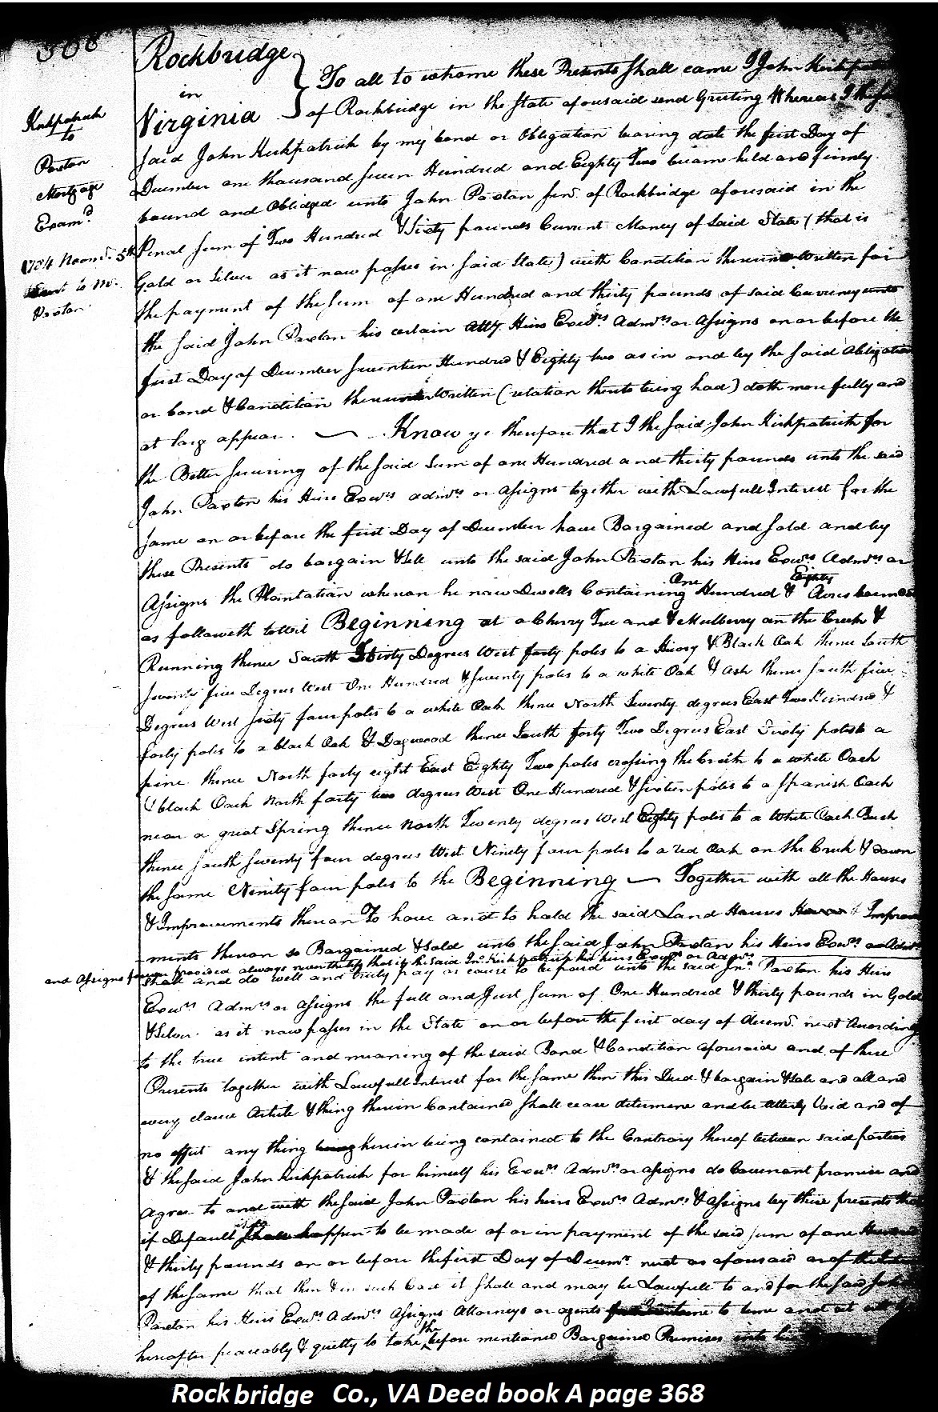 368
Rockbridge
in
Virginia
Kirkpatrick
to
Paxton
Mortgage
Exam.d
1784 Novem.r 5th
to Mr.
Paxton
To all to whome these Presents shall come I John Kirkpatrick
of Rockbridge in the State afousaid send Greeting Whereas I the
said John Kirkpatrick by my bond or Obligation bearing date the first Day of
December one thousand seven Hundred and Eighty Two became held and firmly
bound and Obliged unto John Paxton Junr. of Rockbridge aforesaid in the
Penal sum of Two Hundred & Sixty pounds Current Money of said State (that is
Gold or Silver as it now passes in said State) with Condition thereunto Written for
the payment of the Sum of one Hundred and thirty pounds of said Currency unto
the said John Paxton his certain Atty Heirs Exers Admrs or Assigns on or before the
first Day of December seventeen Hundred & Eighty two as in and by the said Obligation
or bond & Condition thereunto Written (relation thereto being had) doth more fully and
at larg appear. Know ye therefore that I the said John Kirkpatrick for
the Better securing of the said Sum of one Hundred and thirty pounds unto the said
John Paxton his Heirs Exers admrs or assigns together with Lawfull Interest for the
same on or before the first Day of December have Bargained and sold and by
these Presents do bargain & sell unto the said John Paxton his Heirs Exers Admrs or
Assigns the Plantation whereon he now Dwells Containing One Hundred & Eighty Acres
as followeth towit Beginning at a Cherry Tree and & Mulberry on the Creek &
Running thence South Degrees West forty poles to a Hicory & Black Oak thence South
seventy five Degrees West One Hundred & seventy poles to a white Oak & ash thence south five
Degrees West sixty four poles to a white Oak thence North Seventy degrees East Two Hundred &
forty poles to a black Oak & Dogwood thence South forty Two Degrees East Sixty poles to a
pine thence North forty eight East Eighty Two poles crossing the Creek to a white Oack
& black Oack North forty two degrees West One Hundred & sixteen poles to a Spanish Oack
near a great Spring thence North Twenty degrees West Eighty poles to a White Oack Bush
thence South seventy four degrees West Ninety four poles to a red Oak on the Creek & down
the same Ninety four poles to the Beginning — Together with all the Houses
& Improvements thereon To have and to hold the said Land Houses & Improve
ments thereon so Bargained & sold unto the said John Paxton his Heirs Exers or Admrs
and Assigns forever provided always nevertheless that if the said Jno. Kirkpatrick his heirs Exers or Admrs
shall and do well and truly pay or cause to be paid unto the said Jno. Paxton his Heirs
Exers Admrs or assigns the full and Just sum of One Hundred & thirty pounds in Gold
& Silver as it now passes in the State on or before the first day of Decemr. next According
to the true intent and meaning of the said Bond & Condition aforesaid and of these
Presents together with Lawfull Interest for the same then this Deed & bargain & Sale and all and
every clause Article & thing therein Contained shall cease determine and be utterly Void and of
no effect any thing herein being contained to the Contrary thereof between said parties
& the said John Kirkpatrick for himself his Exers Admrs or assigns do Covenant promise and
agree to and with the said John Paxton his heirs Exers Admrs & Assigns by these presents that
if Default shall happen to be made of or in payment of the said sum of one Hundred
& thirty pounds on or before the first Day of Decemr. next as aforesaid or of the
of the same that then & in such Case it shall and may be Lawfull to and for the said John
Paxton his Heirs Exers Admrs Assigns Attorneys or agents to time and at all
hereafter peaceably & quietly to take the before mentioned Bargained Premises into
Rockbridge Co., VA Deed book A page 368